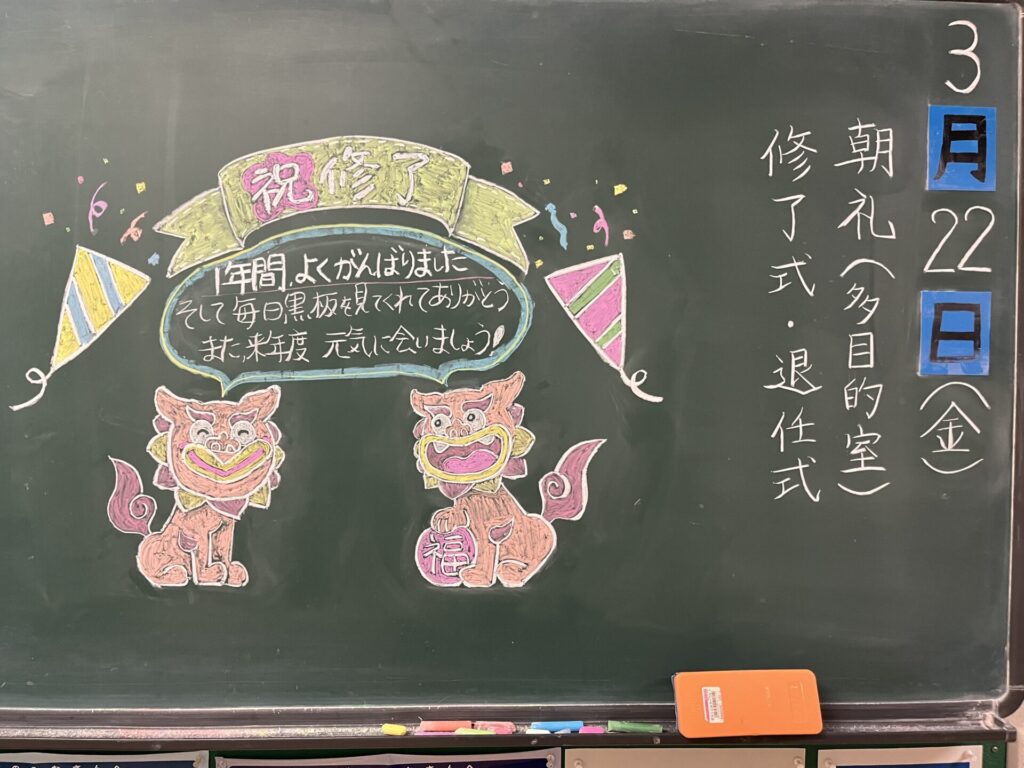 3月22日(金)
朝礼(多目的室)
修了式・退任式
祝修了
1年間、よくがんばりました
そして毎日黒板を見てくれてありがとう
また、来年度 元気に会いましょう!
福